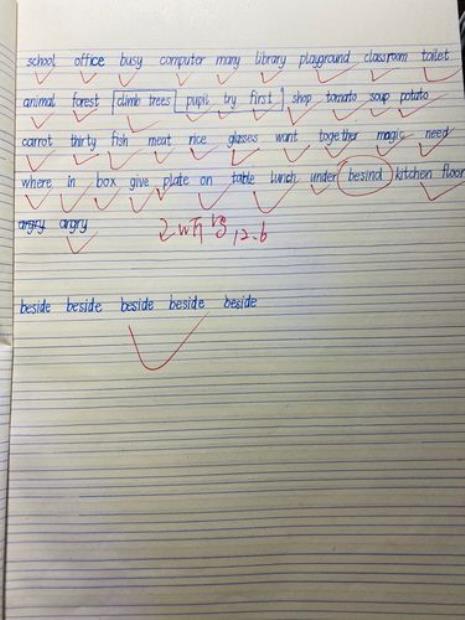 school office busy computer many library playground classroom toilet
animal forest climb trees pupil try first shop tomato soup potato
carrot thirty fish meat rice glasses want together magic need
where in box give plate on table lunch under besind kitchen floor
angry angry
12.6
beside beside beside beside beside